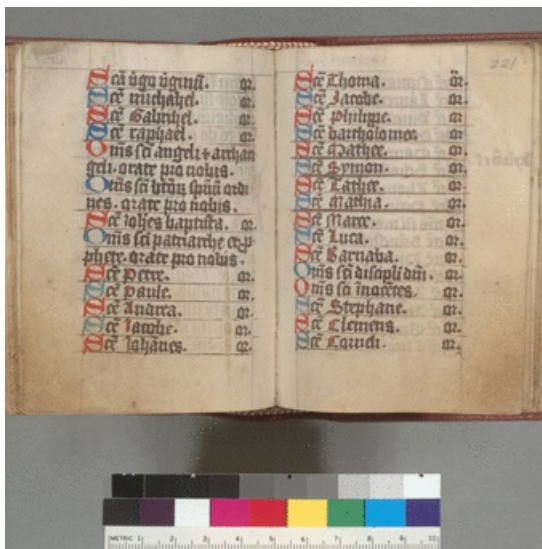 Scā v̄go v̄ginū. or.
Scē michahel. or.
Scē Gabrihel. or.
Scē raphael. or.
Om̄s sc̄i angeli ⁊ archan
geli. orate pro nobis.
Om̄s sc̄i btō₂ spūū ordi
nes. orate pro nobis.
Scē ioh̄es baptista. or.
Om̄s sc̄i patriarche et p̄
phete. orate pro nobis.
Scē Petre. or.
Scē Paule. or.
Scē Andrea. or.
Scē Iacobe. or.
Scē Iohānes. or.
221
Scē Thoma. or.
Scē Jacobe. or.
Scē philippe. or.
Scē bartholomee. or.
Scē Mathee. or.
Scē Symon. or.
Scē Tathee. or.
Scē Mathia. or.
Scē Marce. or.
Scē Luca. or.
Scē Barnaba. or.
Om̄s sc̄i discip̄li dn̄i. or.
Om̄s sc̄i īnocētes. or.
Scē Stephane. or.
Scē Clemens. or.
Scē Corneli. or.
METRIC 1 2 3 4 5 6 7 8 9 10